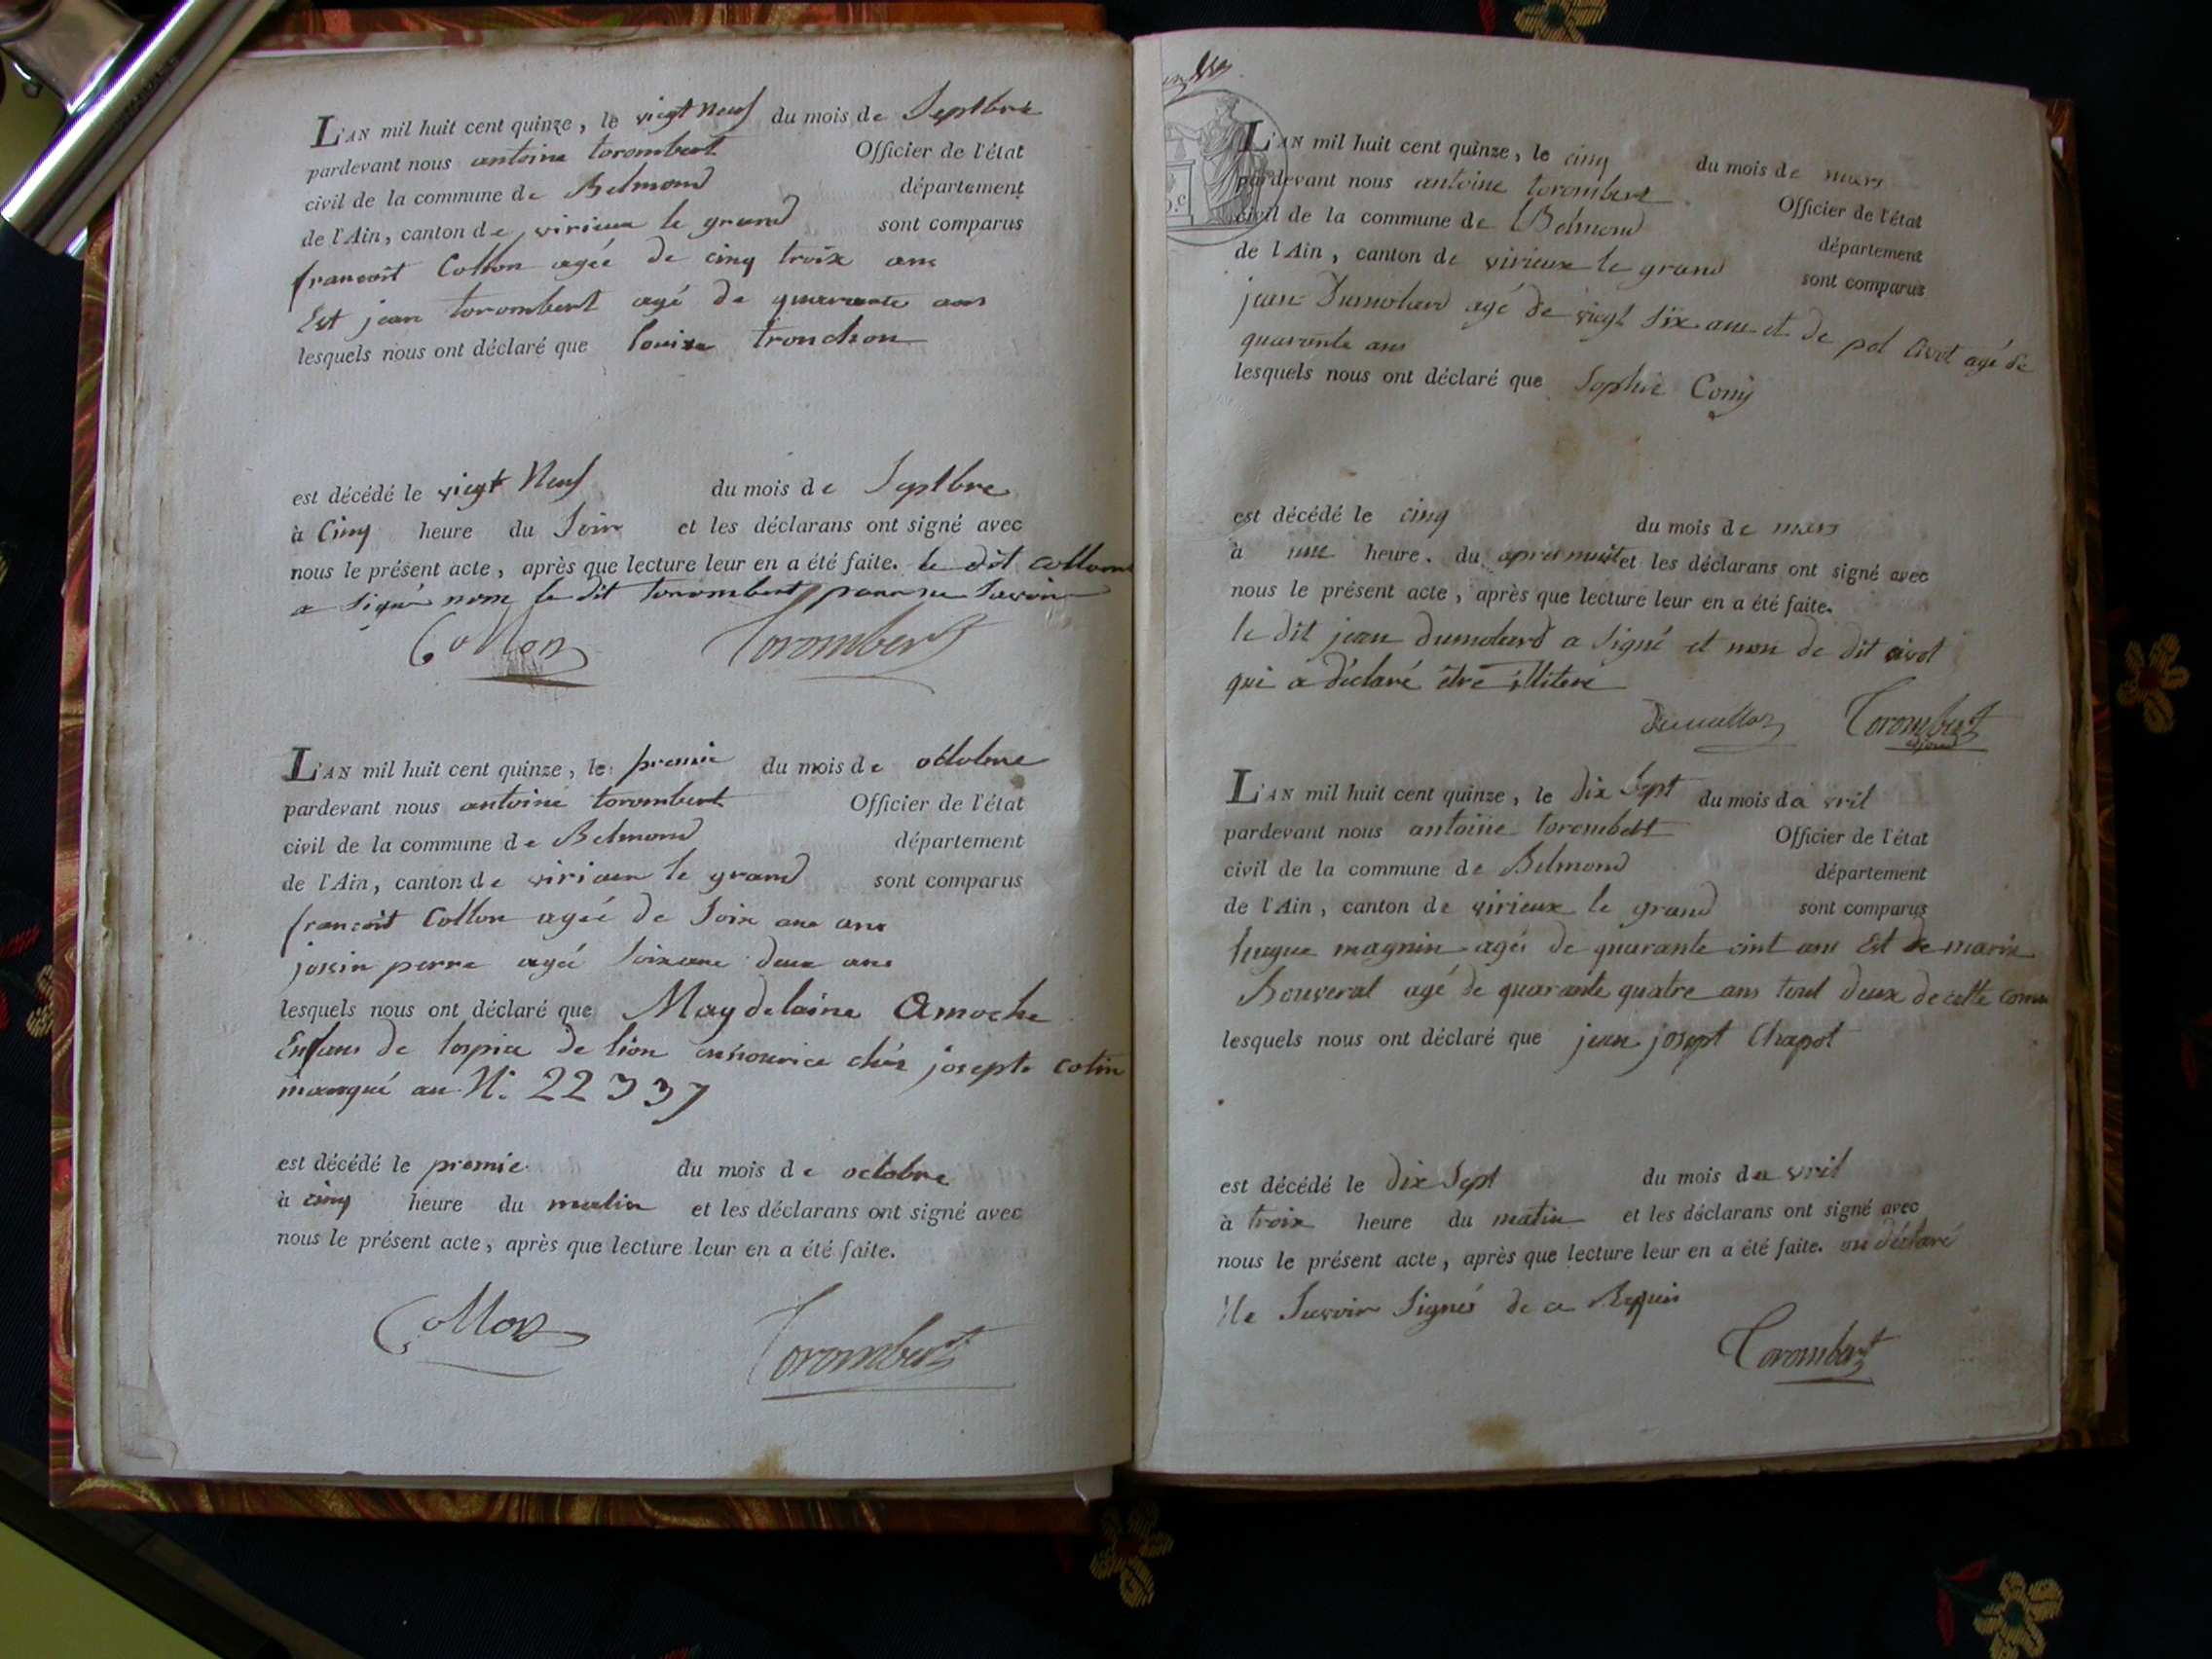 L'AN mil huit cent quinze, le vigt neuf du mois de Septbre
pardevant nous antoine torombert Officier de l'état
civil de la commune de Belmond département
de l'Ain, canton de virieux le grand sont comparus
francoit Collon agéé de cinq troix ans
Est jean torombert agé de quarante ans
lesquels nous ont déclaré que Louise tronchon
est décédé le vigt Neuf du mois de Septbre
à Cinq heure du Soir et les déclarans ont signé avec
nous le présent acte, après que lecture leur en a été faite. le dit collon
a Signé nom le dit torombert pour ne Savoir
Collon Torombert
L'AN mil huit cent quinze, le premie du mois de octobre
pardevant nous antoine torombert Officier de l'état
civil de la commune de Belmond département
de l'Ain, canton de virieux le grand sont comparus
francoit Collon agéé de Soix ans
josin perre agéé Soixane deux ans
lesquels nous ont déclaré que Magdelaine Amoche
Enfans de lospice de lion ennourice chés josepte Colin
marqué au N: 22337
est décédé le premie du mois de octobre
à cinq heure du matin et les déclarans ont signé avec
nous le présent acte, après que lecture leur en a été faite.
Collon Torombert
L'AN mil huit cent quinze, le cinq du mois de mars
pardevant nous antoine torombert Officier de l'état
civil de la commune de Belmond département
de l'Ain, canton de virieux le grand sont comparus
jean Dumolard agé de vigt Six ans et de pol Civot agé de
quarante ans
lesquels nous ont déclaré que Sophie Cony
est décédé le cinq du mois de mars
à une heure. du apres nuit et les déclarans ont signé avec
nous le présent acte, après que lecture leur en a été faite.
le dit jean dumolard a Signé et non de dit civot
qui a déclaré être illiteré
Dumollard Torombert
adjoint
L'AN mil huit cent quinze, le dix Sept du mois da vril
pardevant nous antoine torombert Officier de l'état
civil de la commune de Belmond département
de l'Ain, canton de virieux le grand sont comparus
hugue magnin agés de quarante cint ans Est de marin
Bouverat agé de quarante quatre ans tout deux de cette comu
lesquels nous ont déclaré que jean josept Chapot
est décédé le dix Sept du mois da vril
à troix heure du matin et les déclarans ont signé avec
nous le présent acte, après que lecture leur en a été faite. on déclaré
Ne Savoir Signés de ce Requis
Torombert